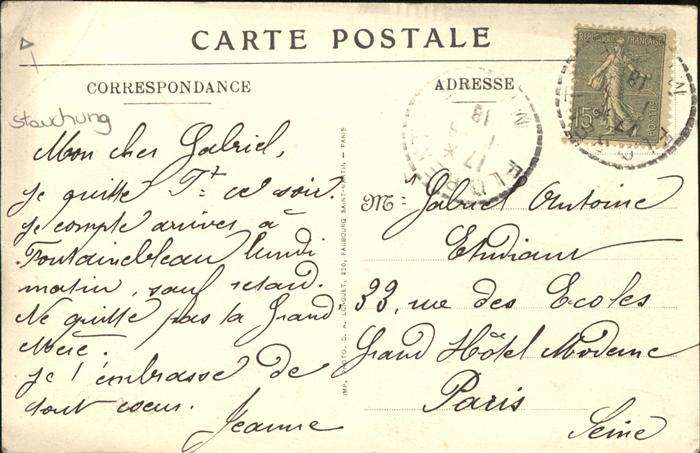 CARTE POSTALE
CORRESPONDANCE
ADRESSE
RÉPUBLIQUE FRANÇAISE
15c
POSTES
Stauchung
Mon cher Gabriel,
Je quitte Pt ce soir.
Je compte arriver à
Fontainebleau lundi
matin, sauf retard.
Ne quitte pas ta Grand
Mère.
Je t'embrasse de
tout coeur.
Jeanne
IMP. PHOTO. D. A. LONGUET, 250, FAUBOURG SAINT-MARTIN - PARIS
Mr Gabriel Antoine
Etudiant
33, rue des Ecoles
Grand Hôtel Moderne
Paris
Seine
17
18